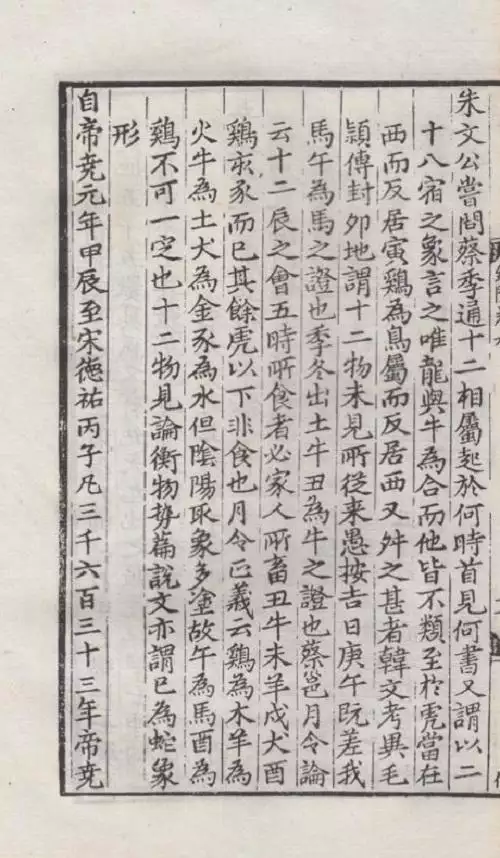 朱文公嘗問蔡季通十二相屬起於何時首見何書又謂以二
十八宿之象言之唯龍與牛為合而他皆不類至於虎當在
西而反居寅鷄為鳥屬而反居西又舛之甚者韓文考異毛
頴傳封夘地謂十二物未見所從来愚按吉日庚午旣差我
馬午為馬之證也季冬出土牛丑為牛之證也蔡邕月令論
云十二辰之會五時所食者必家人所畜丑牛未羊戌犬酉
鷄亥豕而已其餘虎以下非食也月令正義云鷄為木羊為
火牛為土犬為金豕為水但陰陽取象多塗故午為馬酉為
鷄不可一定也十二物見論衡物勢篇說文亦謂巳為蛇象
形
自帝堯元年甲辰至宋德祐丙子凡三千六百三十三年帝堯